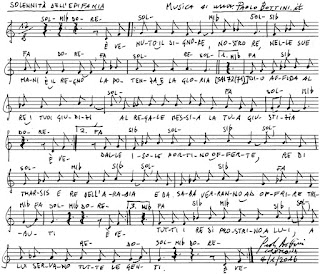 SOLENNITÀ DELL'EPIFANIA MUSICA di www.PAOLO BOTTINI.it
SOL- MIb DO- RE- SOL- MIb SOL- SIb
È VE- NU-TO IL SI-GNO-RE NO-STRO RE NEL-LE SUE
FA DO- RE- FA MIb SIb
MA-NI È IL RE-GNO LA PO-TEN-ZA E LA GLO-RIA DI-O AF-FI-DA AL
FA SOL- SIb SOL-
RE I TUOI GIU-DI-ZI AL RE-GA-LE DES-SI-A LA TUA GIU-STI-ZIA
DO- RE- 2. FA SIb SOL-
È VE- DAL-LE I-SO-LE POR-TI-NO OF-FER-TE, RE DI
SOL- SIb SOL- SIb
THAR-SIS E RE DELL'A-RA-BIA E DA SA-BA VER-RAN-NO AD OF-FRI-RE TRI-
MIb FA SOL- MIb DO- RE- 3. MIb FA SIb
BU-TI È VE- TUT-TI I RE SI PRO-STRI-NO A LU-I A
FA RE- DO- SOL- MIb DO- RE-
LUI SER-VA-NO TUT-TE LE GEN-TI. È VE-
Paolo Bottini